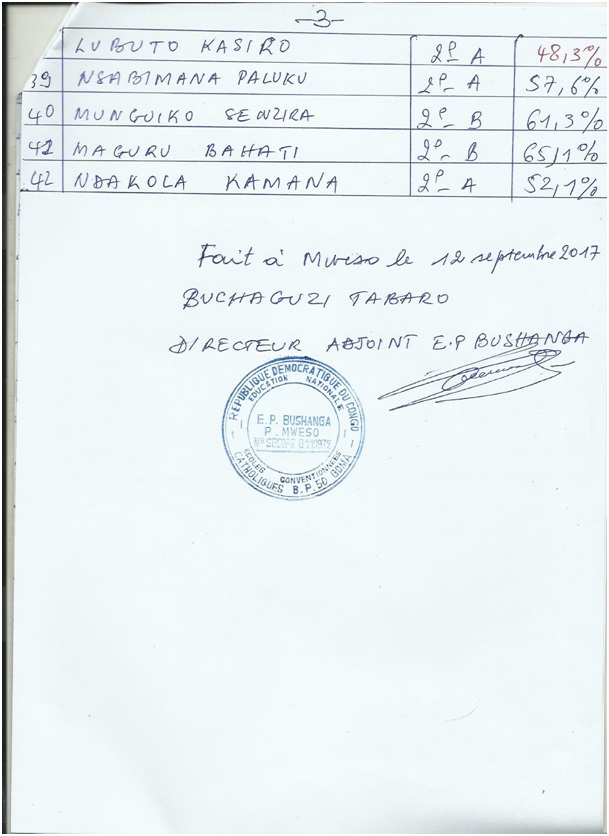 -3-
LUBUTO KASIRO 2e A 48,3%
39 NSABIMANA PALUKU 2e A 57,6%
40 MUNGUIKO SENZIRA 2e B 61,3%
41 MAGURU BAHATI 2e B 65,1%
42 NDAKOLA KAMANA 2e A 52,1%
Fait à Mweso le 12 septembre 2017
BUCHAGUZI TABARO
DIRECTEUR ADJOINT E.P BUSHANGA
REPUBLIQUE DEMOCRATIQUE DU CONGO
EDUCATION NATIONALE
E.P. BUSHANGA
P. MWESO
N° SECOPE
ECOLES CONVENTIONNEES
CATHOLIQUES B.P. 50 GOMA